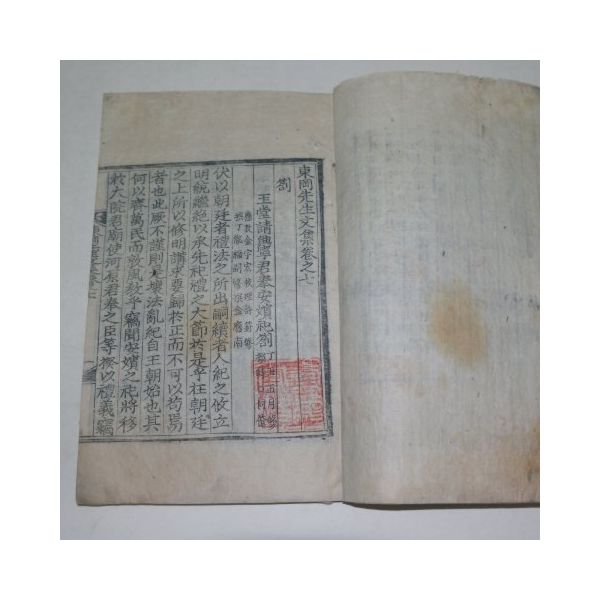 東岡先生文集卷之七
劄
玉堂請興寧君奉安嬪祀劄
伏以朝廷者禮法之所出嗣續者人紀之攸立
明統繼絶以承先祀禮之大節於是乎在朝廷
之上所以修明講求要歸於正而不可以苟焉
者也此厥不謹則壞法亂紀自王朝始也其
何以齊萬民而敦風敎乎竊聞安嬪之祀將移
於大院君廟使河原君奉之臣等揆以禮義竊